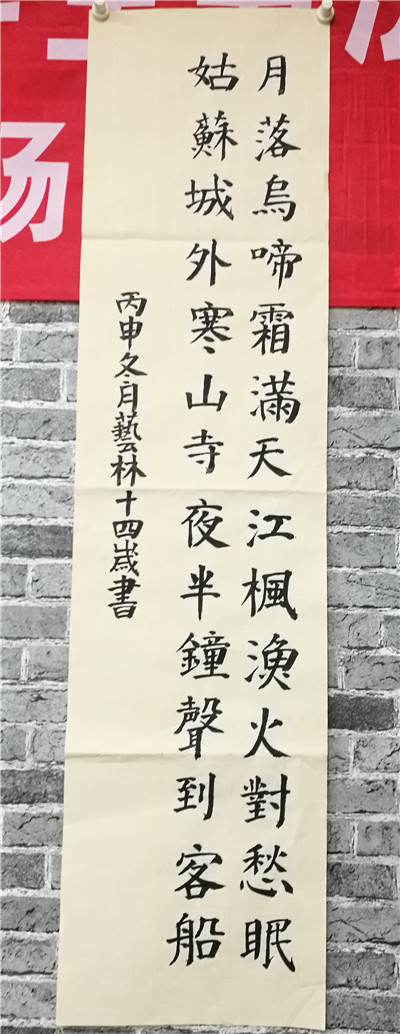 月落烏啼霜滿天江楓漁火對愁眠
姑蘇城外寒山寺夜半鐘聲到客船
丙申冬月藝林十四歲書
场